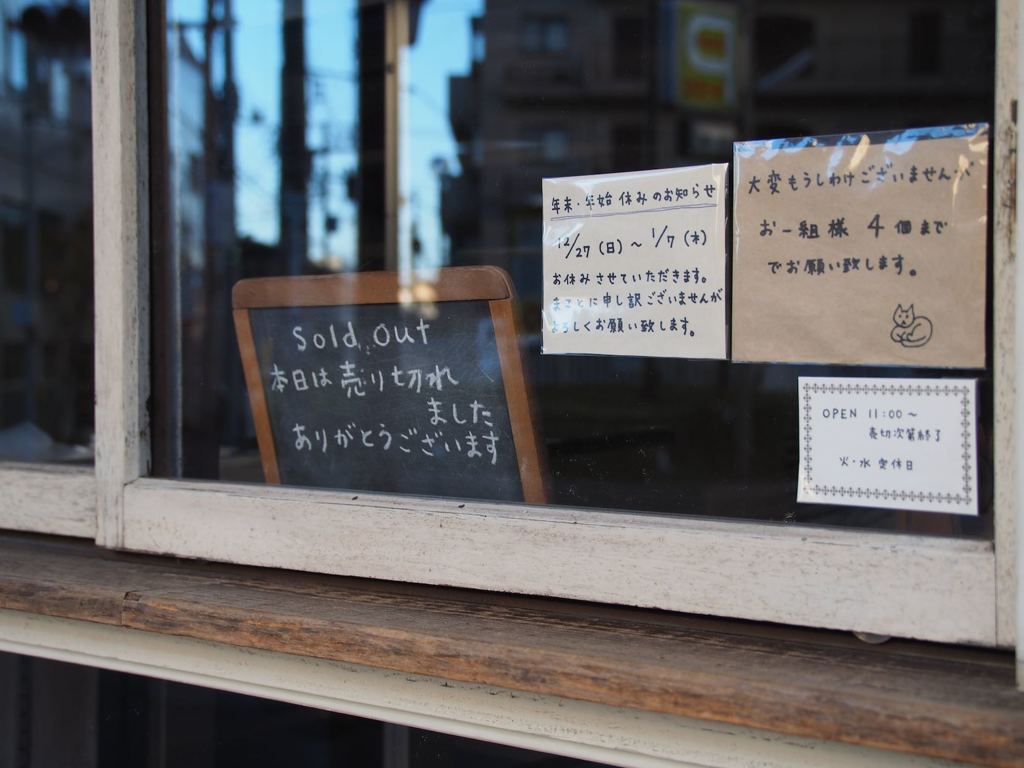 Sold out
本日は売り切れ
ました
ありがとうございます
年末・年始 休みのお知らせ
12/27(日)〜1/7(木)
お休みさせていただきます。
まことに申し訳ございませんが
よろしくお願い致します。
大変もうしわけございませんが
お一組様 4個まで
でお願い致します。
OPEN 11:00〜
売切次第終了
火・水 定休日